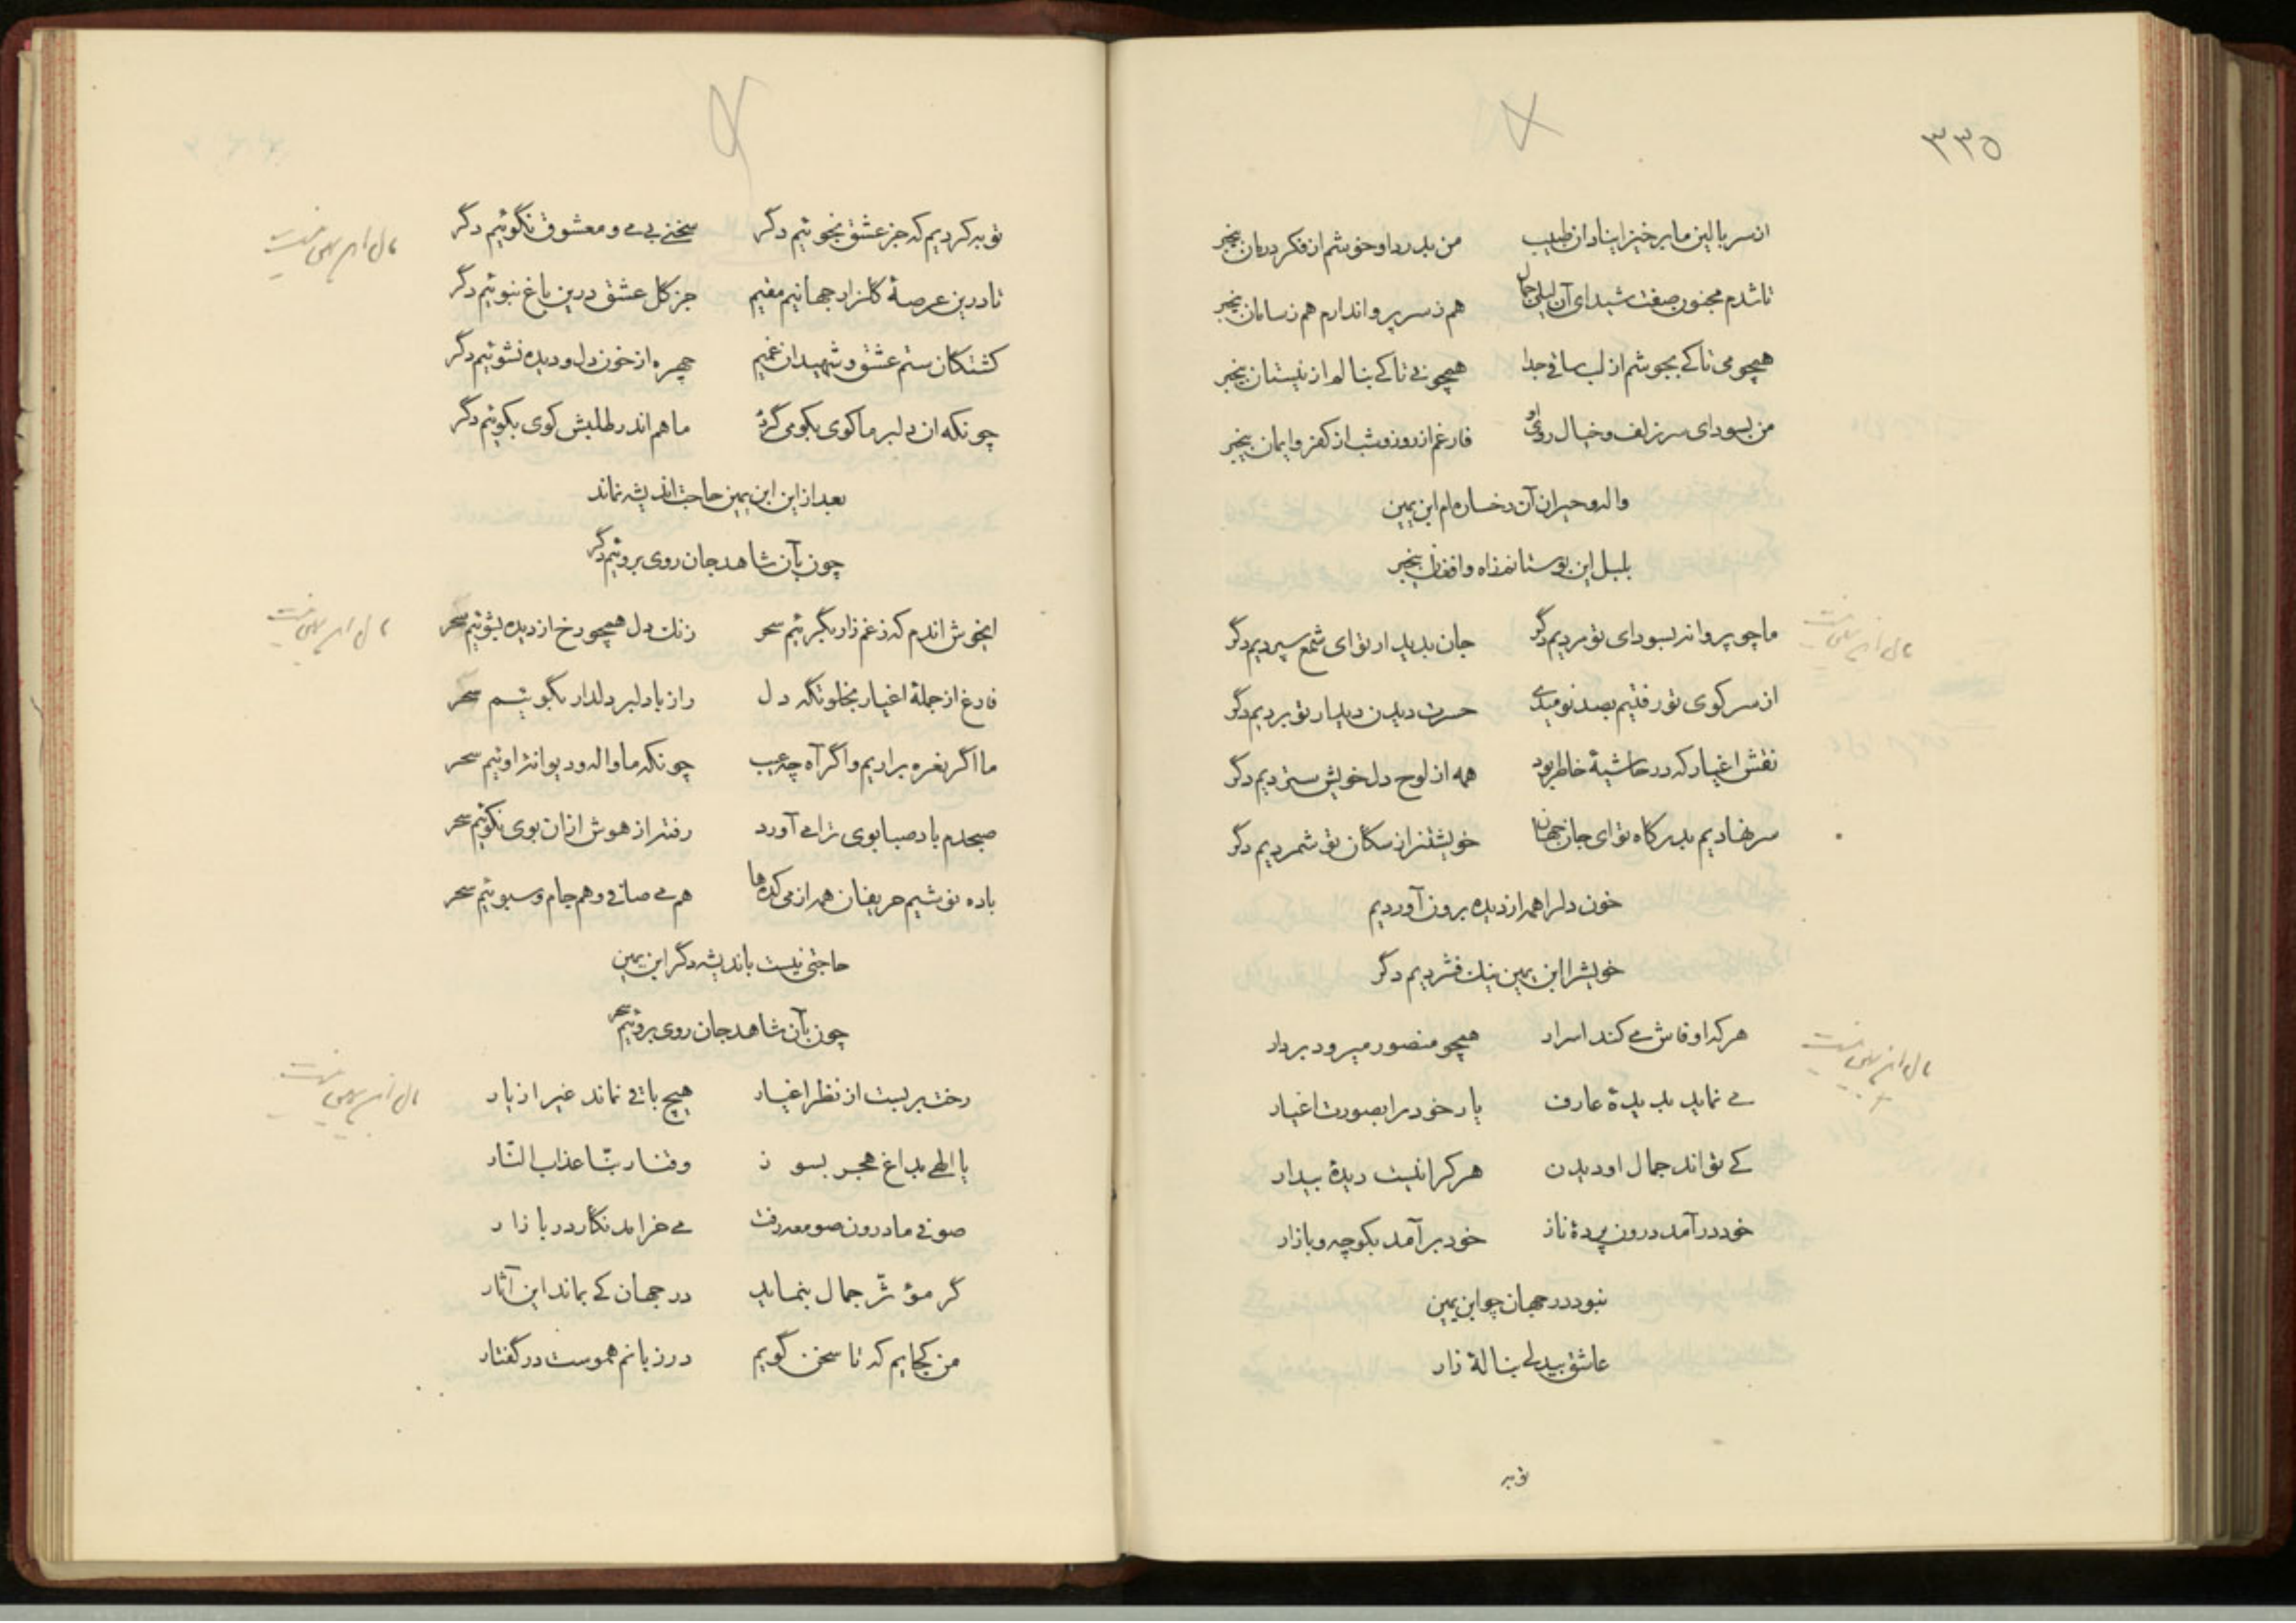 ۳۳۵
از سر بالین ما برخیز ای نادان طبیب من بدرد او خوشم از فکر درمان بیخبر
تا شدم مجنون صفت شیدای آن لیلی جمال هم ز سر پروا ندارم هم ز سامان بیخبر
همچو می تا کے بجوشم از لب ساقی جدا همچو نی تا کے بنالم از نیستان بیخبر
من بسودای سر زلف و خیال روی او فارغم از روز و شب از کفر و ایمان بیخبر
واله و حیران آن رخساره ام ابن یمین
بلبل این بوستانم زاه و افغان بیخبر
ما چو پروانه بسودای تو مردیم دگر جان بدیدار تو ای شمع سپردیم دگر
از سر کوی تو رفتیم بصد نومیدی حسرت دیدن دیدار تو بردیم دگر
نقش اغیار که در حاشیهٔ خاطر بود همه از لوح دل خویش ستردیم دگر
سر نهادیم بدرگاه تو ای جان جهان خویشتن از سگان تو شمردیم دگر
خون دلرا همه از دیده برون آوردیم
خویشرا ابن یمین نیک فشردیم دگر
هر که او فاش مے کند اسرار همچو منصور میرود بردار
مے نماید بدیدهٔ عارف یار خود را بصورت اغیار
کے تواند جمال او دیدن هر کرا نیست دیدهٔ بیدار
خود درآمد درون پردهٔ ناز خود برآمد بکوچه و بازار
نبود در جهان چو ابن یمین
عاشق بیدلے بنالهٔ زار
توبه
توبه کردیم که جز عشق نجوئیم دگر سخنے بے مے و معشوق نگوئیم دگر
تا درین عرصهٔ گلزار جهانیم مقیم جز گل عشق درین باغ نبوئیم دگر
کشتگان ستم عشق و شهیدان غمیم چهره از خون دل و دیده نشوئیم دگر
چونکه ان دلبر ما کوی بکو می گردد ما هم اندر طلبش کوی بکوئیم دگر
بعد ازاین ابن یمین حاجت اندیشه نماند
چون بآن شاهد جان روی بروئیم دگر
ایخوش اندم که ز غم زار بگرئیم سحر زنک دل همچو رخ از دیده بشوئیم سحر
فارغ از جملهٔ اغیار بخلوتگه دل راز با دلبر دلدار بگوئیم سحر
ما اگر نعره براریم و اگر آه چه عیب چونکه ما واله و دیوانهٔ اوئیم سحر
صبحدم باد صبا بوی ترا مے آورد رفته از هوش ازان بوی نکوئیم سحر
باده نوشیم حریفان همه از می کده ها هم مے صافے و هم جام و سبوئیم سحر
حاجتی نیست باندیشه دگر ابن یمین
چون بآن شاهد جان روی بروئیم سحر
رخت بربست از نظر اغیار هیچ باقے نماند غیر از یار
یا الهے بداغ هجر بسوز وقنا ربنا عذاب النّار
صوفے ما درون صومعه رفت مے خرامد نگار در بازار
گر مؤثّر جمال بنماید در جهان کے بماند این آثار
من کجایم که تا سخن گویم در زبانم هموست در گفتار